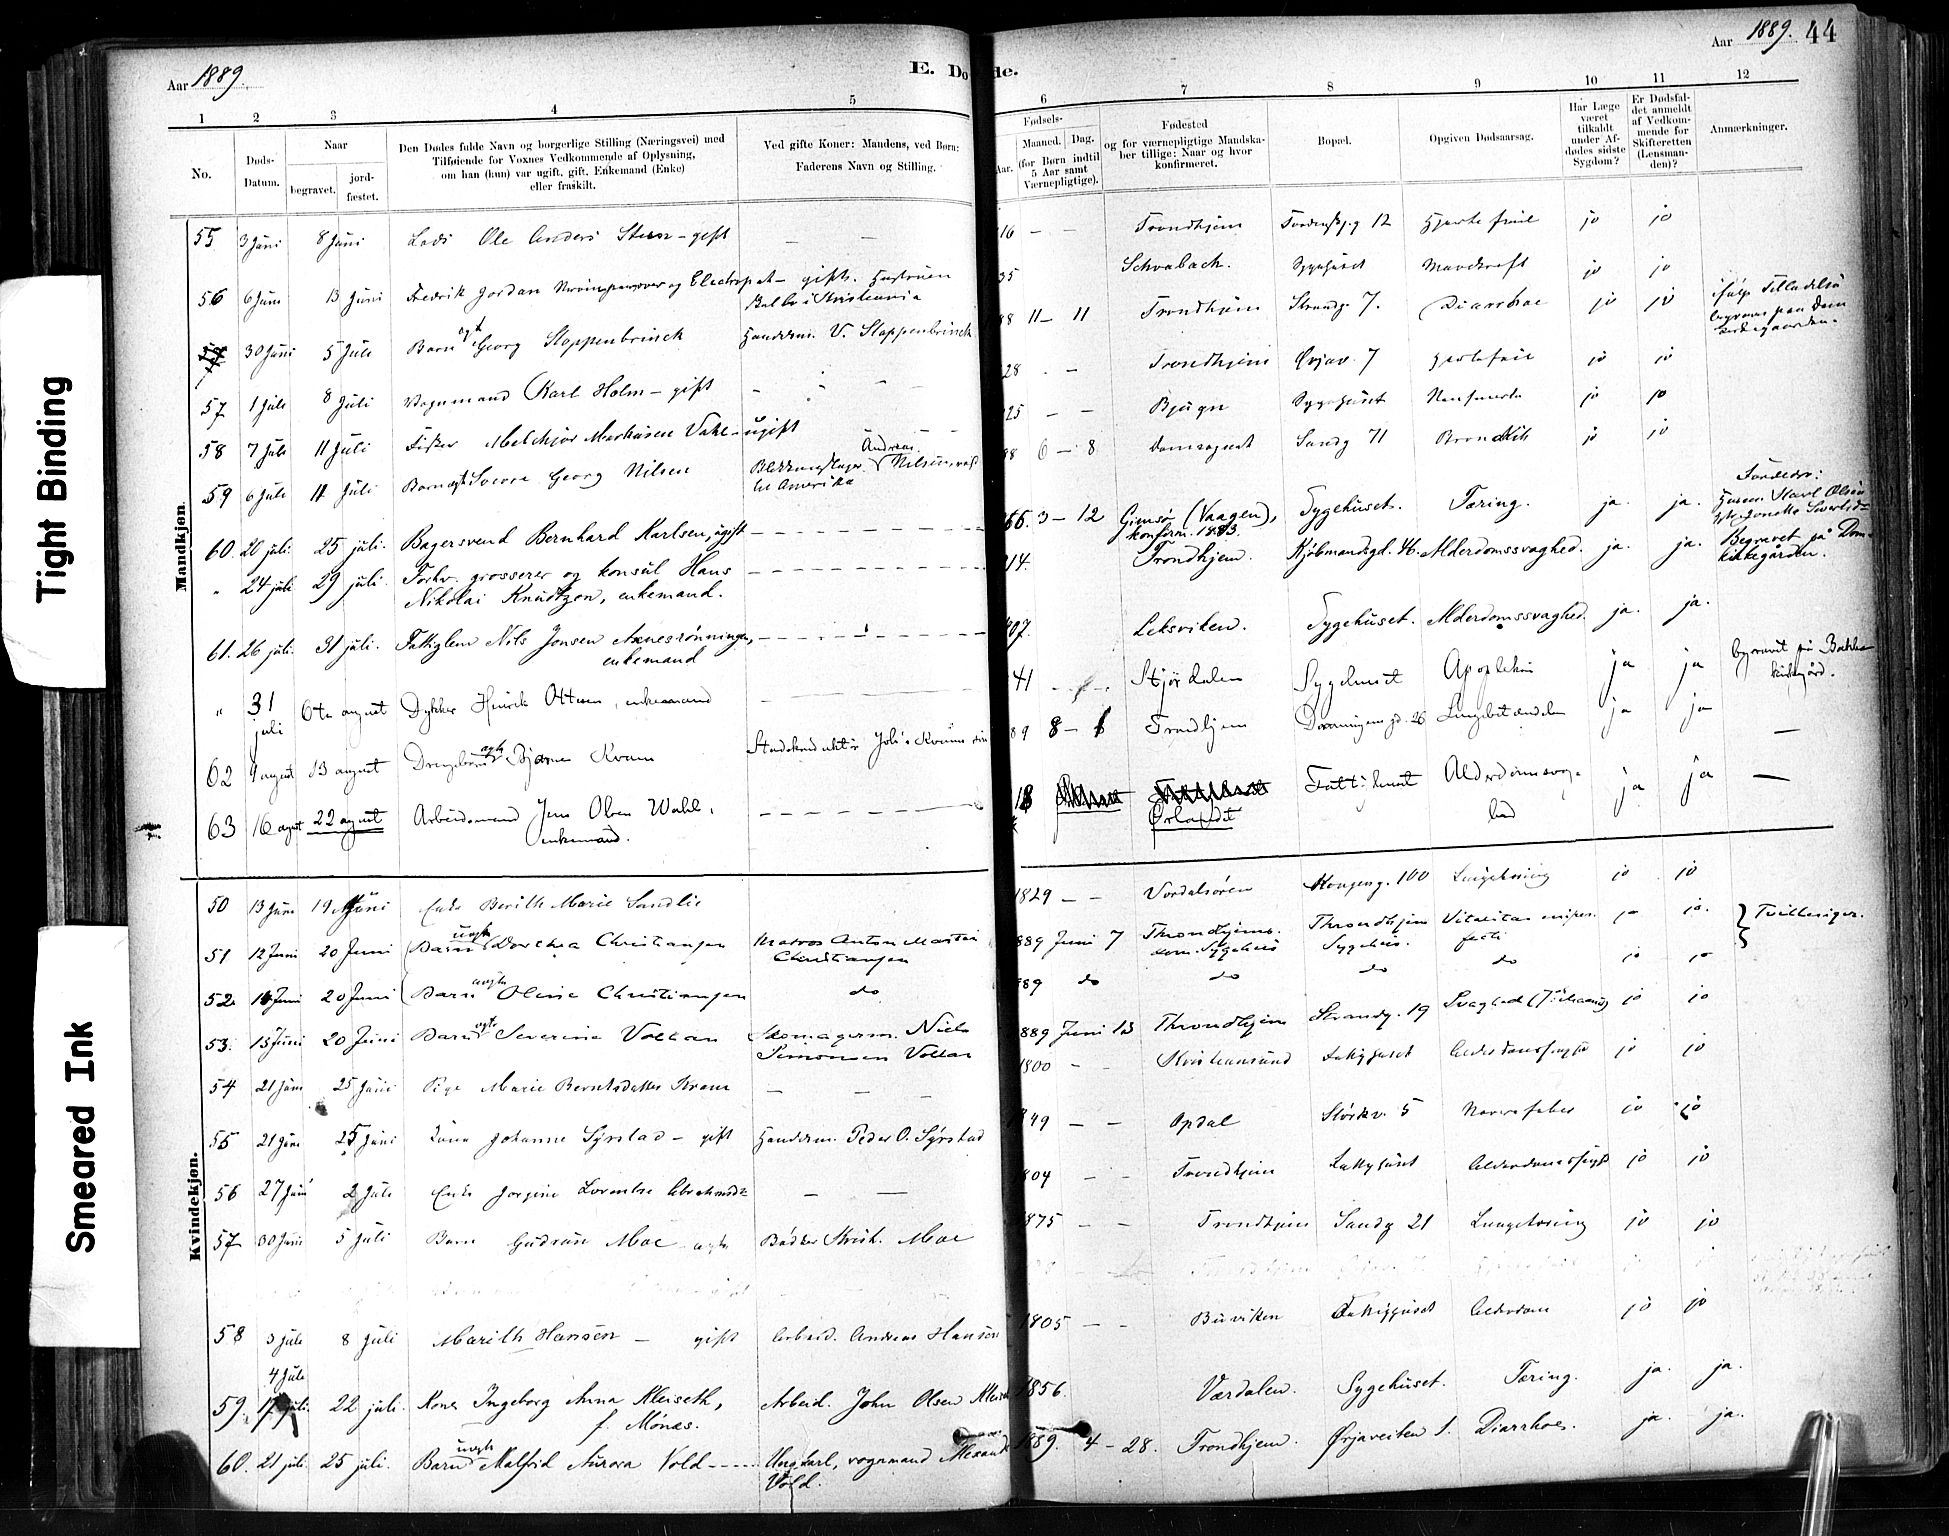 Tight Binding
Smeared Ink
Aar 1889.
E. Do de.
Aar 1889. 44
1 2 3 4 5 6 7 8 9 10 11 12
No.
Døds-
Datum.
Naar
begravet.
jord-
fæstet.
Den Dødes fulde Navn og borgerlige Stilling (Næringsvei) med
Tilføiende for Voxnes Vedkommende af Oplysning,
om han (hun) var ugift, gift, Enkemand (Enke)
eller fraskilt.
Ved gifte Koner: Mandens, ved Børn:
Faderens Navn og Stilling.
Fødsels-
Aar.
Maaned. Dag.
(for Børn indtil
5 Aar samt
Værnepligtige).
Fødested
og for værnepligtige Mandska-
ber tillige: Naar og hvor
konfirmeret.
Bopæl.
Opgiven Dødsaarsag.
Har Læge
været
tilkaldt
under Af-
dødes sidste
Sygdom?
Er Dødsfal-
det anmeldt
af Vedkom-
mende for
Skifteretten
(Lensman-
den)?
Anmærkninger.
Mandkjøn.
55 3 Juni 8 Juni Lods Ole Anders Steen - gift — — 16 — — Trondhjem 12 jo jo
56 6 Juni 13 Juni Fredrik Jordan og Electropat - gift. Hustruen
i Kristiania 35 Schwabach. Sygehuset Mavekræft jo jo
30 Juni 5 Juli Barn ægte Georg Stoppenbrinck Handelsm. V. Stoppenbrinck 11 — 11 Trondhjem Strandg. 7. Diarrhoe jo jo
57 1 Juli 8 Juli Vognmand Karl Holm - gift 28 Trondhjem Ørjav. 7 Hjertefeil jo jo
58 7 Juli 11 Juli Fisker Melchior Markusen Vahl - ugift 25 — — Bjugn Sygehuset jo jo
59 6 Juli 11 Juli Barn ægte Sverre Georg Nilsen Andreas Nilsen,
til Amerika 6 — 8 Domsognet Sandg 71 Bronchit jo jo
60. 20 juli. 25 juli. Bagersvend Bernhard Karlsen, ugift 66. 3 — 12 Gimsø (Vaagen),
konfirm. 1883. Sygehuset. Tæring. ja. ja.
Forældre:
" 24 juli 29 juli. Forhv. grosserer og konsul Hans
Nikolai Knudtzon, enkemand. 14. Trondhjem. Kjøbmandsgd. 46. Alderdomssvaghed. ja. ja. Begravet på Dom-
kirkegården.
61. 26 juli. 31 juli. Fattiglem Nils Jonsen Aunesrønningen,
enkemand 07. Leksviken. Sygehuset. Alderdomssvaghed ja. ja.
" 31
juli 6te august Dykker Henrik Ottesen, enkemand 41 Stjørdalen Sygehuset Apoplexi ja ja begravet på Bakke
kirkegård.
62 9 august 13 august Drengebarn ægte Bjarne Kvam Stadskonduktør Kvam 89 8 — 1 Trondhjem Dronningens gd. 26 Lungebetændelse ja ja —
63 16 august 22 august Arbeidsmand Jens Olsen Wahl,
enkemand. 18 Ørlandet Fattighuset Alderdomssvag-
hed ja ja —
Kvindekjøn.
50 13 Juni 19 Juni Enke Berith Marie Sandlie 1829 — — Verdalsøren Kongensg. 100 Lungetæring jo jo
51 12 Juni 20 Juni Barn uægte Dorthea Christiansen Matros Anton Martin
Christiansen 889 Juni 7 Throndhjems
Sygehus Throndhjem
Sygehus. ja jo. } Tvillinger.
52 14 Juni 20 Juni Barn uægte Oline Christiansen do 889 do do do do jo jo
53. 13 Juni 20 Juni Barn ægte Severine Voltan Skomagerm. Niels
Simonsen Voltan 889 Juni 13 Throndhjem Strandg. 19 Svaghed jo jo
54 21 Juni 25 Juni Pige Marie Berntsdatter — — — 1800 - - Kristiansund jo jo
55 21 Juni 25 Juni Kone Johanne Syrstad - gift Handelsm. Peder O. Syrstad 49 — — Opdal 5 Nervefeber jo jo
56 27 Juni 2 Juli Enke Jorgine Lorentse — — 804 - - Trondhjem jo jo
57 30 Juni 5 Juli Barn Gudrun Moe ægte Bødker Krist. Moe 1875 — — Trondhjem Sandg 21 Lungetæring jo jo
58 3 Juli 8 Juli Marith Hansen — gift Arbeid. Andreas Hansen 1805 — — Buviken Fattighuset Alderdom jo jo
4 Juli
59. 17 juli. 22 juli. Kone Ingeborg Anna Kleiseth,
f. Mønæs. Arbeid. John Olsen Kleiseth 1856. Værdalen. Sygehuset. Tæring. ja. ja.
60. 21 juli 25 juli. Barn uægte Malfrid Aurora Vold Ungkarl, vognmand
Vold. 1889. 4 — 28. Trondhjem. Ørjaveiten 1. Diarrhoe. ja. ja.